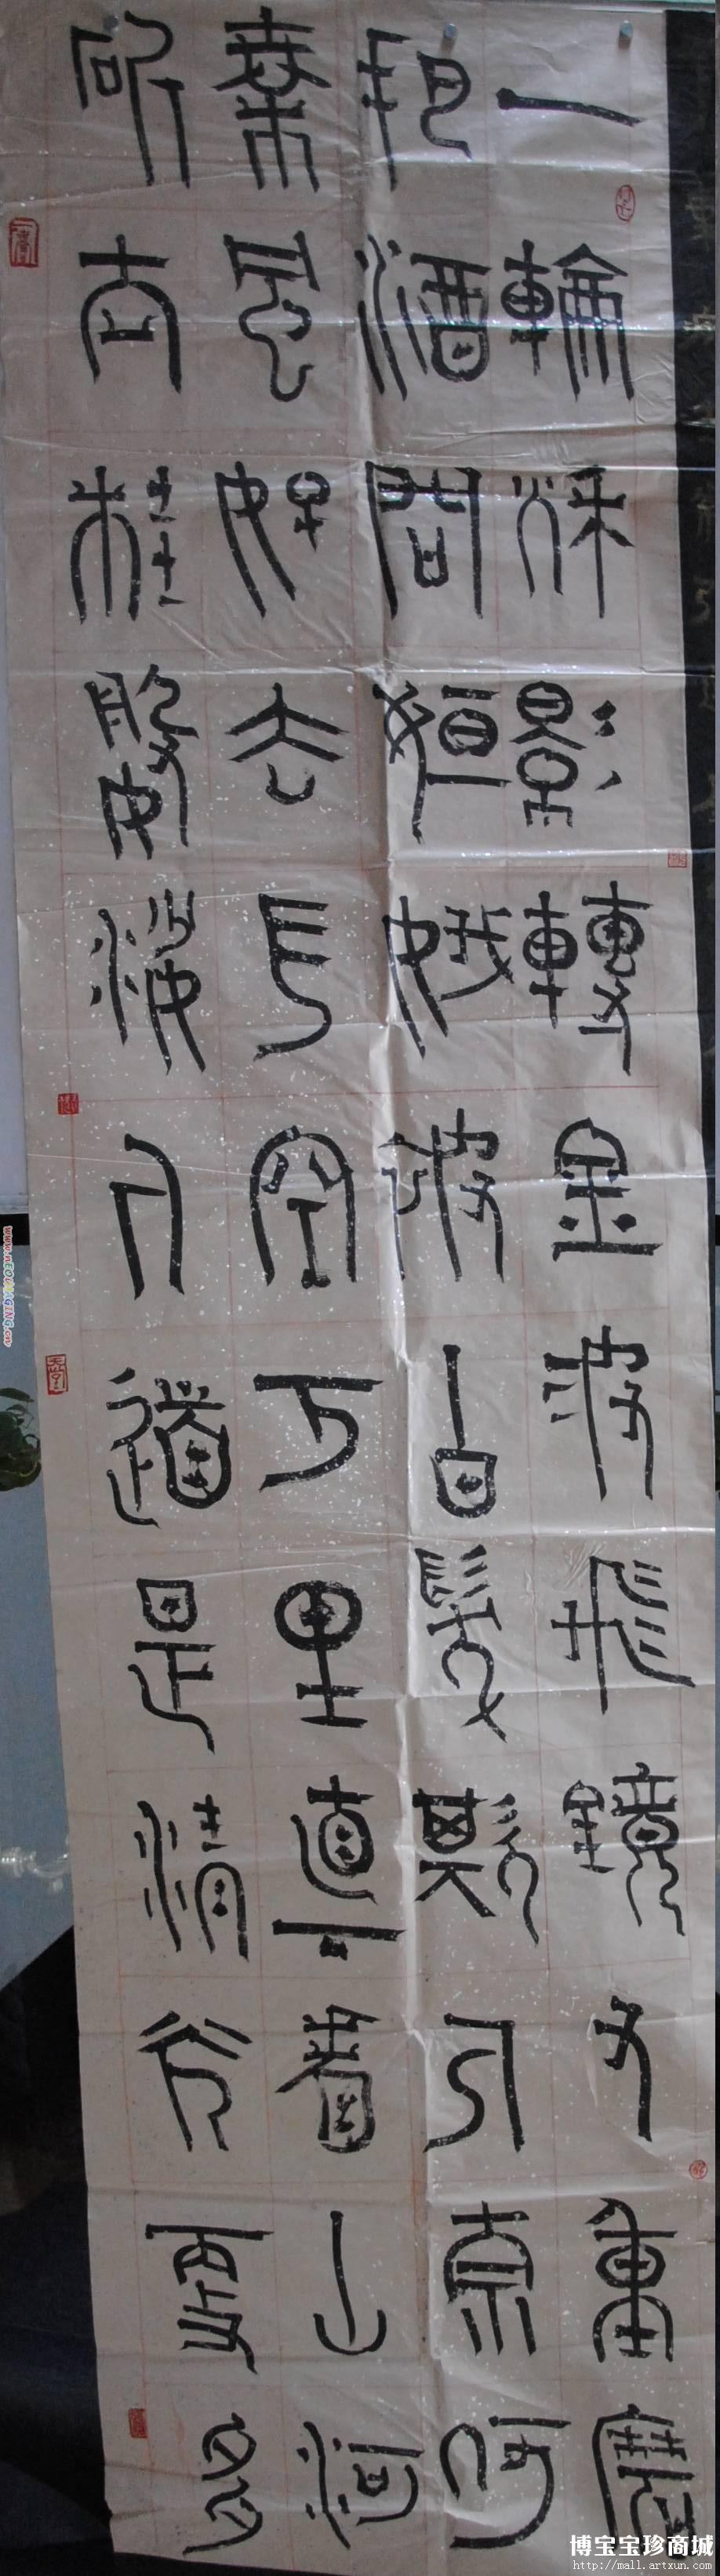 一輪秋影轉金波飛鏡又重磨
把酒問姮娥被白髮欺人奈何
乘風好去長空万里直下看山河
斫去桂婆娑人道是清光更多
www.NEOIMAGING.cn
博宝宝珍商城
http://mall.artxun.com